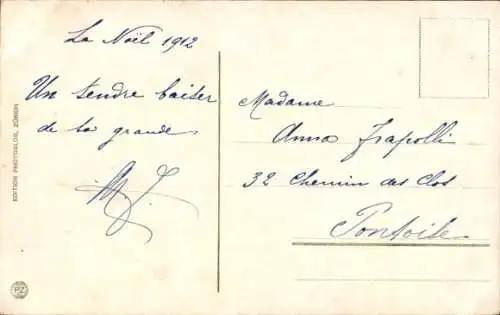 Le Noël 1912
Un tendre baiser
de ta grande
Madame
Anna Frapolli
32 Chemin des Clos
Pontoise
EDITION PHOTOGLOB, ZÜRICH
PZ